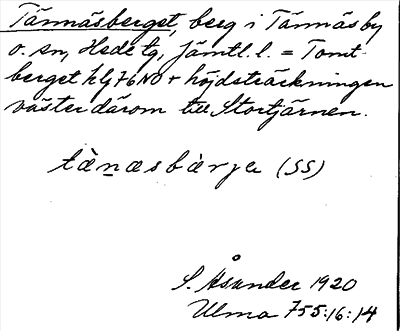 Tännäsberget, berg i Tännäs by
o. sn, Hede tg, Jämtl. l. = Tomt-
berget hlj 76 NO + höjdsträckningen
väster därom till Stortjärnen.
tä̀n̲æsbæ̀rje (SS)
S. Åsander 1920
Ulma 755:16:14